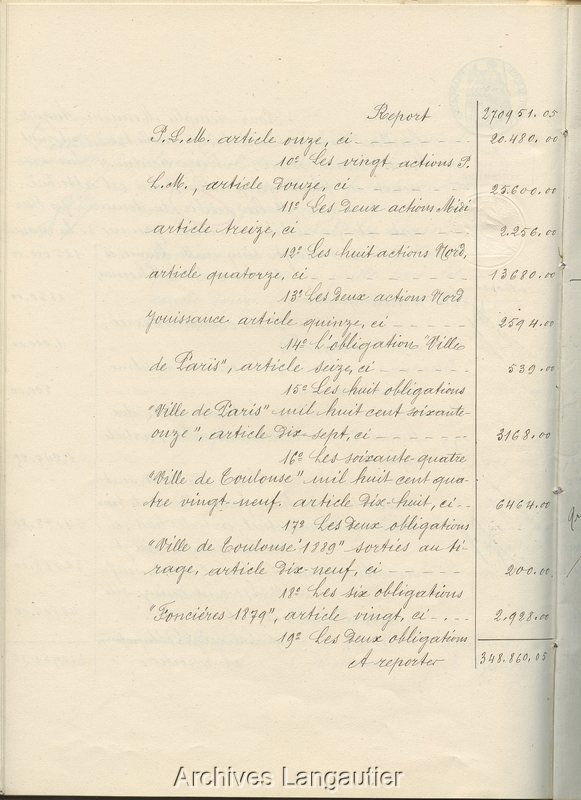 Report 270951.05
P.L.M. article onze, ci 20.480.00
10º Les vingt actions P.
L.M., article douze, ci 25.600.00
11º Les deux actions Midi
article treize, ci 2.256.00
12º Les huit actions Nord,
article quatorze, ci 13680.00
13º Les deux actions Nord
Jouissance article quinze, ci 2594.00
14º L'obligation "Ville
de Paris", article seize, ci 539.00
15º Les huit obligations
"Ville de Paris" mil huit cent soixante-
onze", article dix-sept, ci 3168.00
16º Les soixante-quatre
"Ville de Toulouse" mil huit cent qua-
tre vingt neuf. article dix-huit, ci 6464.00
17º Les deux obligations
"Ville de Toulouse 1889" sorties au ti-
rage, article dix-neuf, ci 200.00
18º Les six obligations
"Foncières 1879", article vingt, ci 2.938.00
19º Les deux obligations
A reporter 348.860.05
Archives Langautier